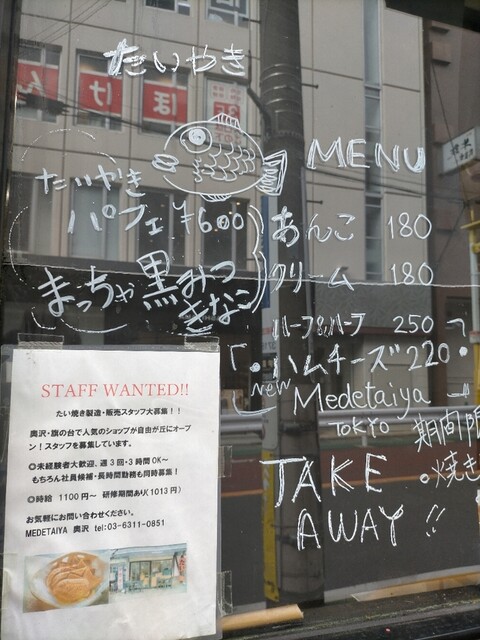 たいやき
MENU
たいやき
パフェ ¥600
まっちゃ 黒みつ
きなこ
あんこ 180
クリーム 180
ハーフ&ハーフ 250
・ハムチーズ 220
NEW
Medetaiya
TOKYO
期間
・焼き
TAKE
AWAY!!
STAFF WANTED!!
たい焼き製造・販売スタッフ大募集!!
奥沢・旗の台で人気のショップが自由が丘にオープ
ン!スタッフを募集しています。
◎未経験者大歓迎、週3回・3時間OK～
もちろん社員候補・長時間勤務も同時募集!
◎時給 1100円～ 研修期間あり(1013円)
お気軽にお問い合わせください。
MEDETAIYA 奥沢 tel:03-6311-0851
んけほ